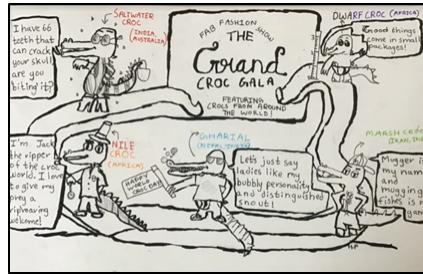 I have 66
teeth that
can crack
your skull,
are you
biting it?
SALTWATER
CROC
(INDIA,
AUSTRALIA)
FAB FASHION SHOW
THE
Grand
CROC GALA
FEATURING
CROCS FROM AROUND
THE WORLD!
DWARF CROC (AFRICA)
Good things
come in small
packages!
I'm Jack
the ripper
of the croc
world. I love
to give my
prey a
welcome!
NILE
CROC
(AFRICA)
HAPPY
WORLD
CROC DAY!
GHARIAL
Lets just say
ladies like my
bubbly personality
and distinguished
snout!
MARSH CROC
Mugger is
my name
and
mugging
fishes is my
game